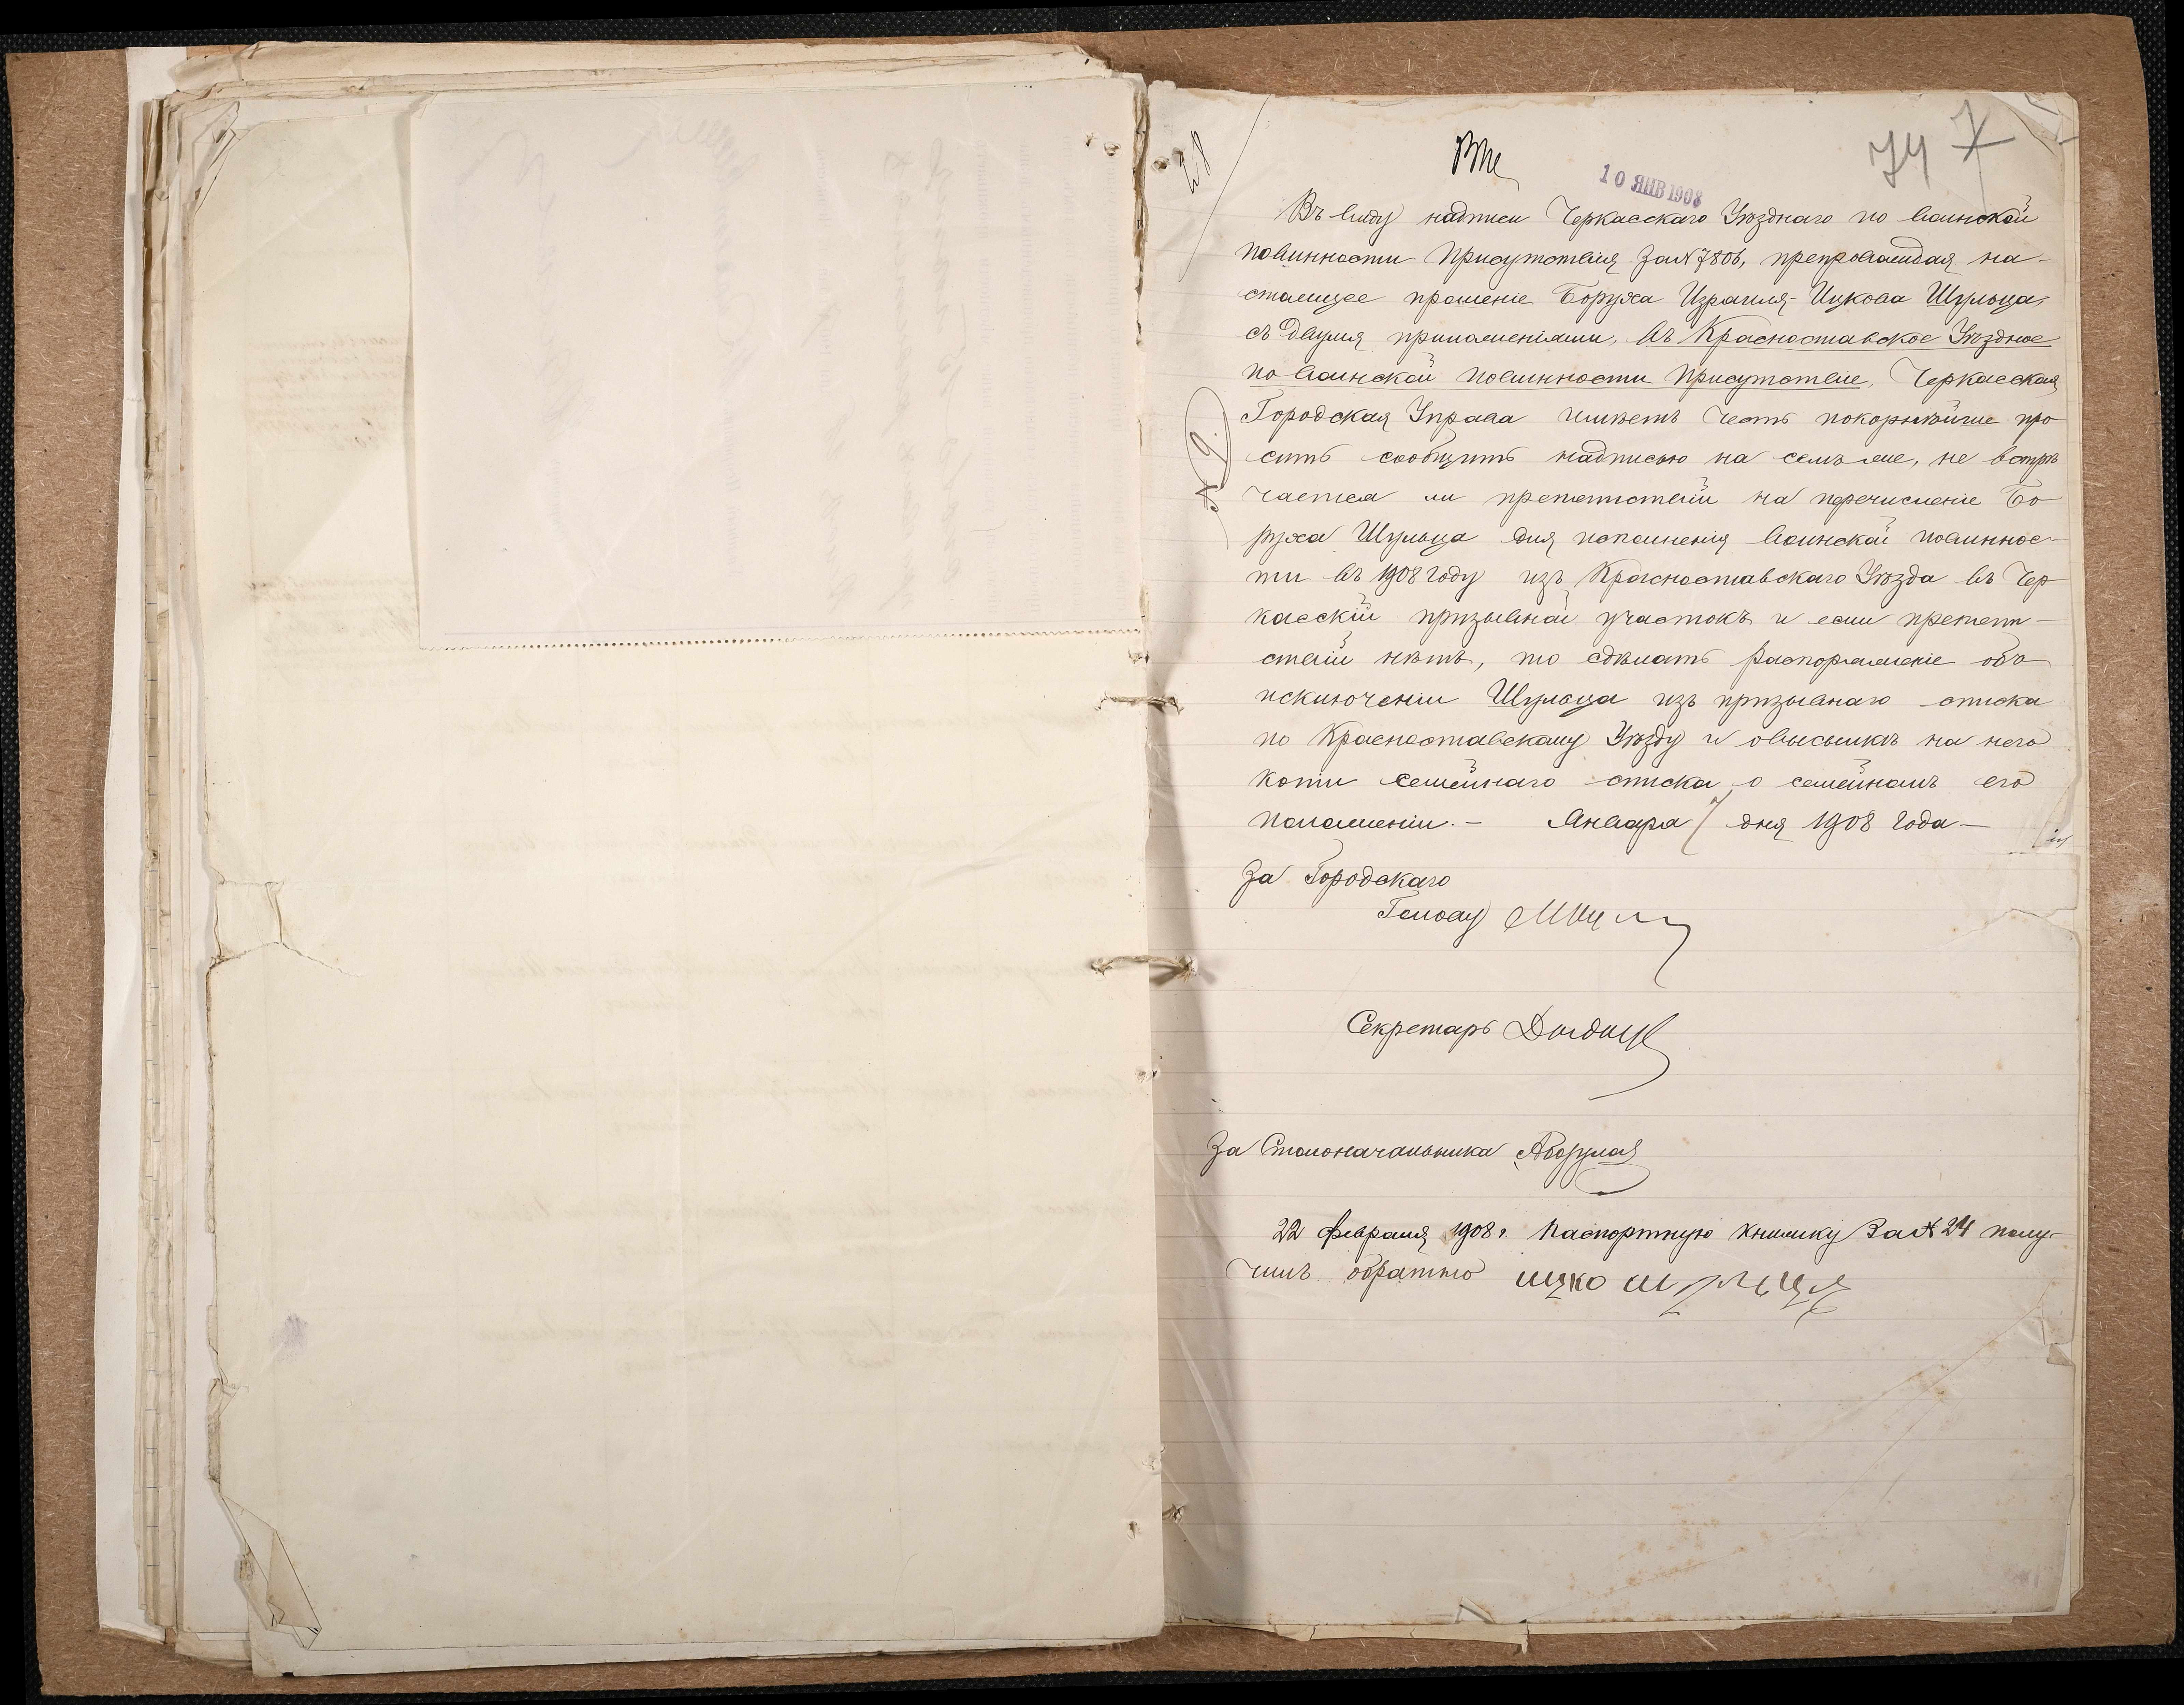 74 7
10 ЯНВ 1908
Въ виду надписи Черкасскаго Уѣзднаго по воинской
повинности Присутствія за № 7806, препровождая на-
стоящее прошеніе Боруха Израиля-Ицкова Шульца,
съ двумя приложеніями, въ Красноставское Уѣздное
по воинской повинности Присутствіе, Черкасская
Городская Управа имѣетъ честь покорнѣйше про
сить сообщить надписью на семъ же, не встрѣ
чается ли препятствій на перечисленіе Бо
руха Шульца для исполненія воинской повиннос-
ти въ 1908 году изъ Красноставскаго Уѣзда въ Чер
касскій призывной участокъ и если препят-
ствій нѣтъ, то сдѣлать распоряженіе объ
исключеніи Шульца изъ призывнаго списка
по Красноставскому Уѣзду и о высылкѣ на него
копіи семейнаго списка о семейномъ его
положеніи. — Января 7 дня 1908 года —
За Городскаго
Голову
Секретарь
За Столоначальника
22 февраля 1908 г. Паспортную книжку за № 24 полу-
чилъ обратно ицко шульця